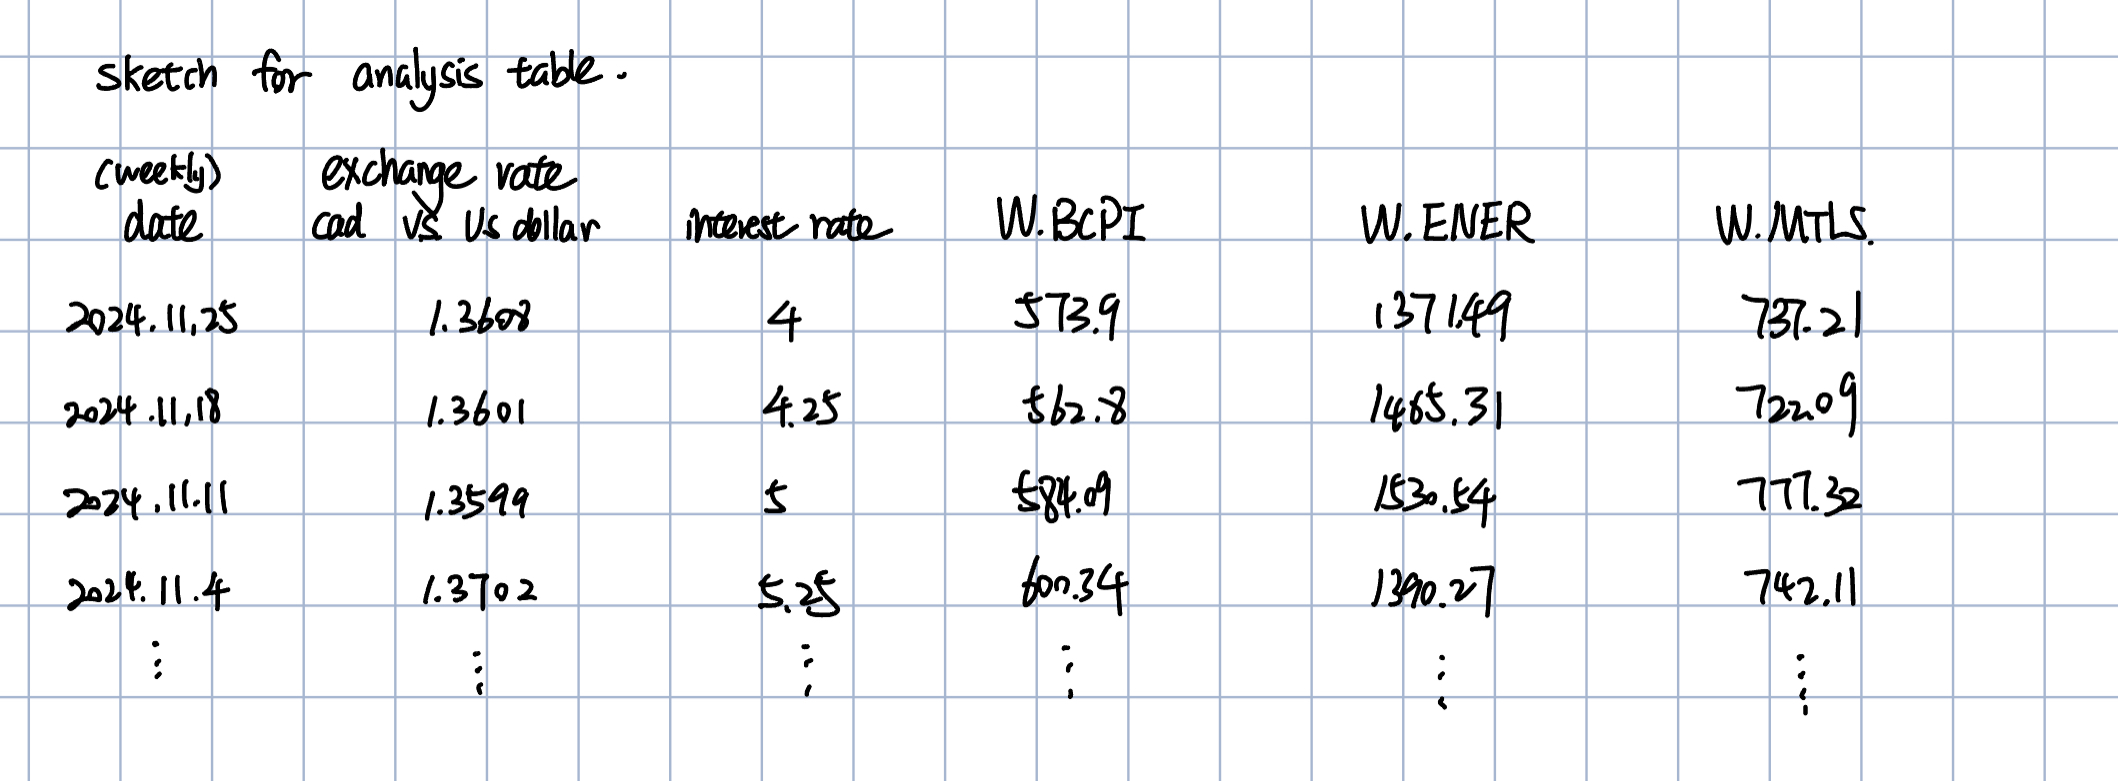 sketch for analysis table.
(weekly) exchange rate
date cad vs US dollar interest rate W.BCPI W.ENER W.MTLS.
2024.11.25 1.3608 4 573.9 1371.49 737.21
2024.11.18 1.3601 4.25 562.8 1465.31 722.09
2024.11.11 1.3599 5 584.09 1530.54 777.32
2024.11.4 1.3702 5.25 600.34 1390.27 742.11
⋮ ⋮ ⋮ ⋮ ⋮ ⋮